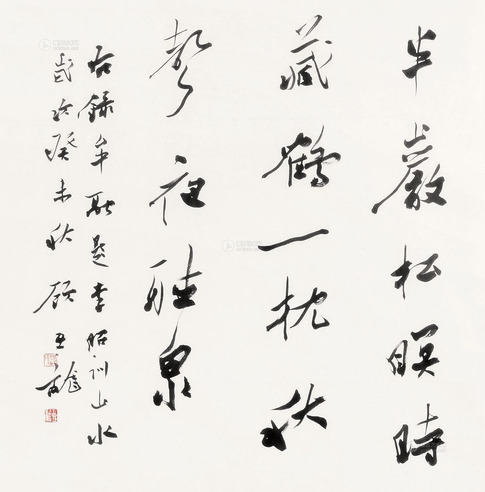 半巖松暝時
藏鶴一枕秋
聲夜聽泉
右錄牟融題李昭訓山水
歲次癸未秋顧亞龍